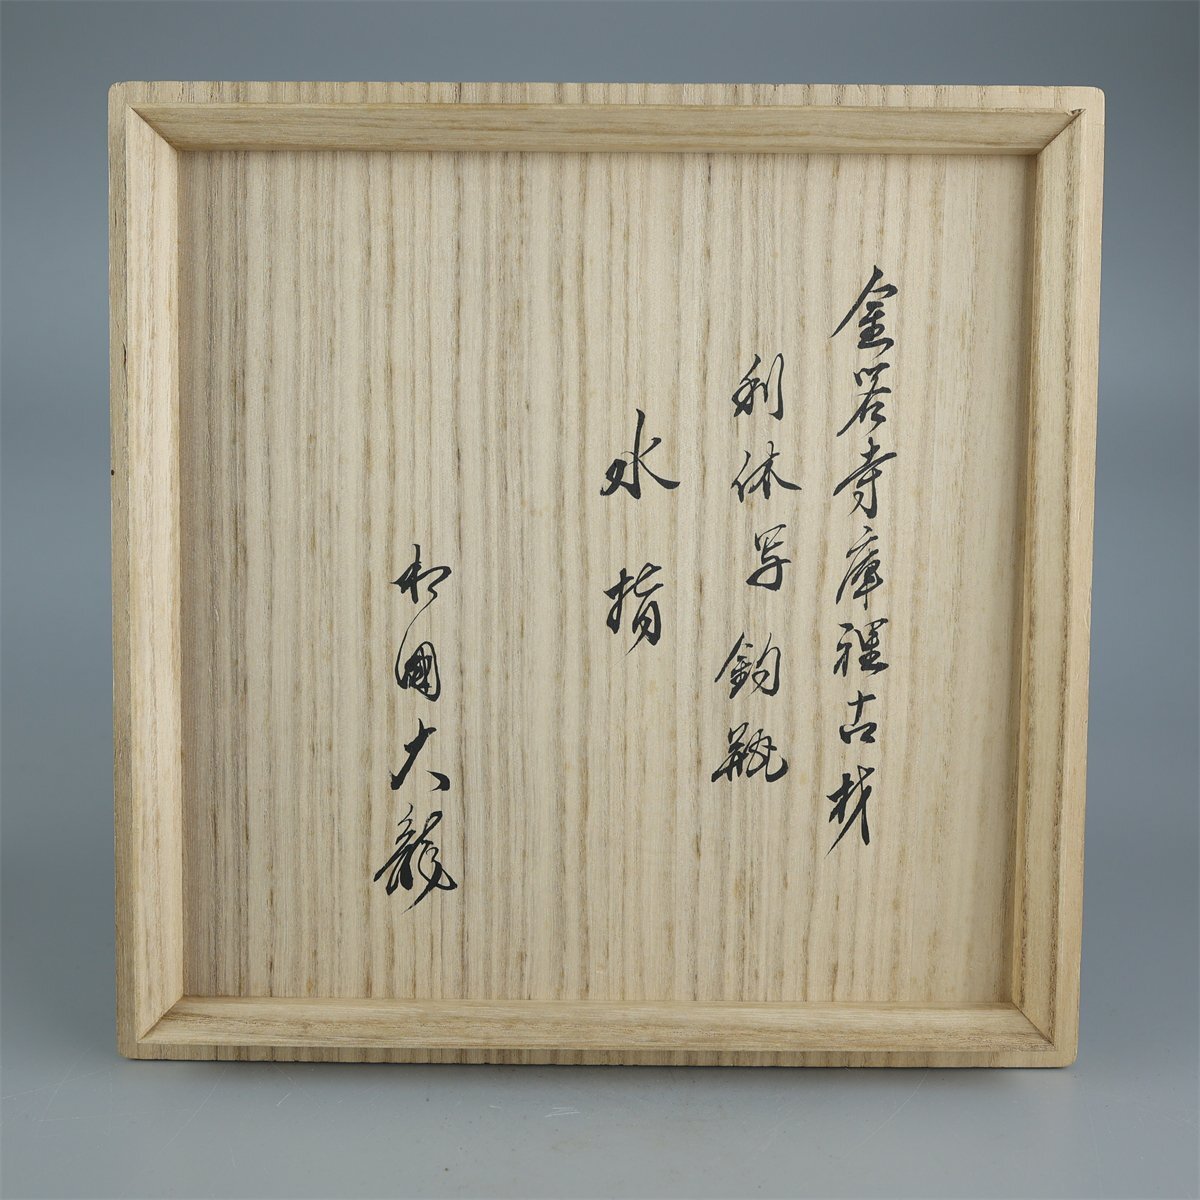 金閣寺庫裡古材
利休写釣瓶
水指
相國大龍